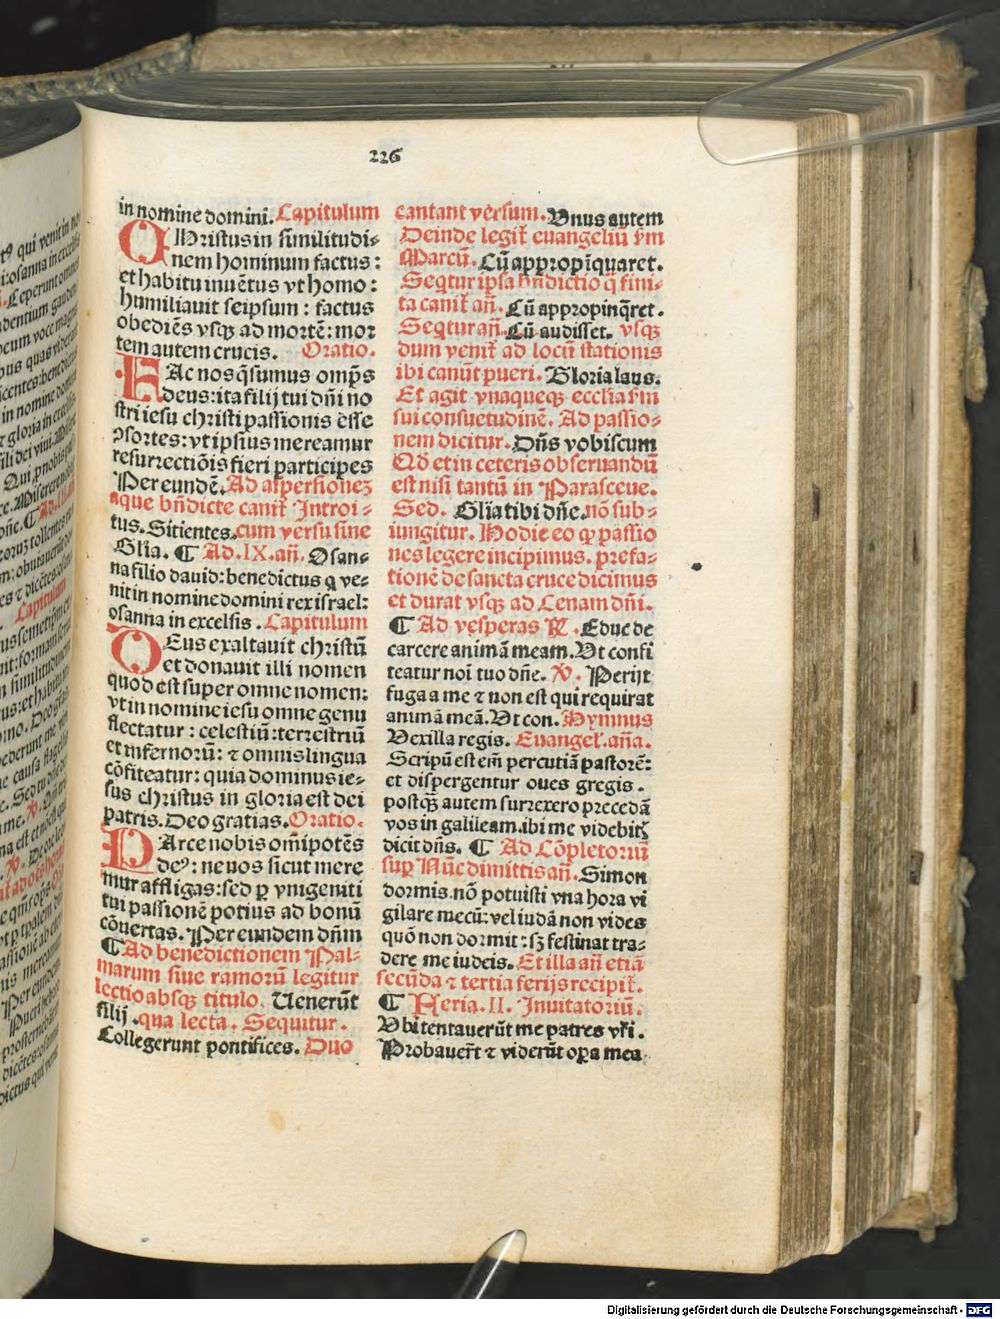 226
in nomine domini. Capitulum
CHristus in similitudi⸗
nem hominum factus:
et habitu inuētus vt homo:
humiliauit seipsum: factus
obediēs vsqꝫ ad mortē: mor
tem autem crucis. Oratio.
FAc nos q̄sumus omp̄s
deus: ita filij tui dn̄i no
stri iesu christi passionis esse
ꝯsortes: vt ipsius mereamur
resurrectiōis fieri participes
Per eundē. Ad aspersionez
aque bn̄dicte canit᷑ Introi⸗
tus. Sitientes. cum versu sine
Gl̄ia. ¶ Ad .IX. an̄. Osan⸗
na filio dauid: benedictus q̇ ve⸗
nit in nomine domini rex israel:
osanna in excelsis. Capitulum
DEus exaltauit christū
et donauit illi nomen
quod est super omne nomen:
vt in nomine iesu omne genu
flectatur: celestiū: terrestriū
et infernorū: ⁊ omnis lingua
cōfiteatur: quia dominus ie⸗
sus christus in gloria est dei
patris. Deo gratias. Oratio.
PArce nobis om̄ipotēs
deꝰ: ne uos sicut mere
mur affligas: sed ꝑ vnigeniti
tui passionē potius ad bonū
cōuertas. Per eundem dn̄m
¶ Ad benedictionem Pal⸗
marum siue ramorū legitur
lectio absqꝫ titulo. Uenerūt
filij. qua lecta. Sequitur.
Collegerunt pontifices. Duo
cantant versum. Vnus autem
Deinde legit᷑ euangeliū ẜm
Marcū. Cū appropiquaret.
Seq̇tur ipsa bn̄dictio q̄ fini⸗
ta canit᷑ an̄. Cū appropinq̄ret.
Seq̇tur an̄. Cū audisset. vsqꝫ
dum venit᷑ ad locū stationis
ibi canūt pueri. Gloria laus.
Et agit vnaqueqꝫ ecclīa ẜm
sui consuetudinē. Ad passio⸗
nem dicitur. Dn̄s vobiscum
Qd̄ et in ceteris obseruandū
est nisi tantū in Parasceue.
Sed. Gl̄ia tibi dn̄e. nō sub⸗
iungitur. Hodie eo ꝙ passio
nes legere incipimus. prefa⸗
tionē de sancta cruce dicimus
et durat vsqꝫ ad Cenam dn̄i.
¶ Ad vesperas ℟. Educ de
carcere animā meam. Vt confi
teatur noī tuo dn̄e. ℣. Perijt
fuga a me ⁊ non est qui requirat
animā meā. Vt con. Hymnus
Vexilla regis. Euangel᷑. an̄a.
Scriptū est em̄ percutiā pastorē:
et dispergentur oues gregis.
postqꝫ autem surrexero precedā
vos in galileam. ibi me videbitꝭ
dicit dn̄s. ¶ Ad Cōpletoriū
sup̄ Nūc dimittis an̄. Simon
dormis. nō potuisti vna hora vi
gilare mecū: vel iudā non vides
quō non dormit: sꝫ festinat tra⸗
dere me iudeis. Et illa an̄ etiā
secūda ⁊ tertia ferijs recipit᷑.
¶ Feria. II. Inuitatoriū.
Vbi tentauerūt me patres vr̄i.
Probauer̄t ⁊ viderūt oꝑa mea.
Digitalisierung gefördert durch die Deutsche Forschungsgemeinschaft - DFG